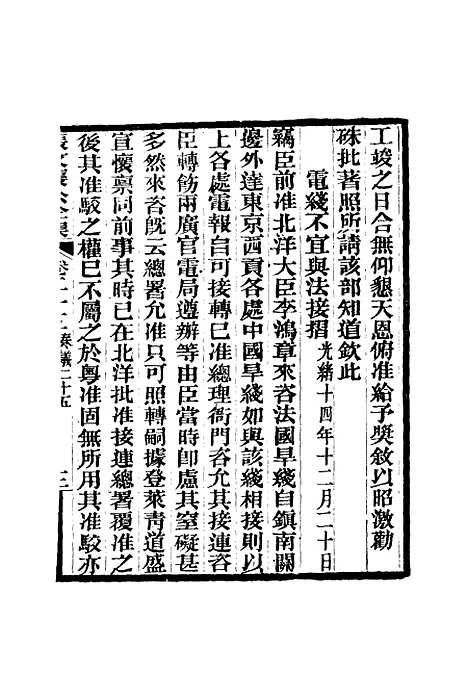 工竣之日合無仰懇天恩俯准給予奬敘以昭激勸
硃批著照所請該部知道欽此
電綫不宜與法接摺光緒十四年十二月二十日
竊臣前准北洋大臣李鴻章來咨法國旱綫自鎭南關
邊外達東京西貢各處中國旱綫如與該綫相接則以
上各處電報自可接轉已准總理衙門咨允其接連咨
臣轉飭兩廣官電局遵辦等由臣當時卽慮其窒礙甚
多然來咨旣云總署允准只可照轉嗣據登萊靑道盛
宣懷稟同前事其時已在北洋批准接連總署覆准之
後其准駁之權已不屬之於粵准固無所用其准駁亦
奏議二十五